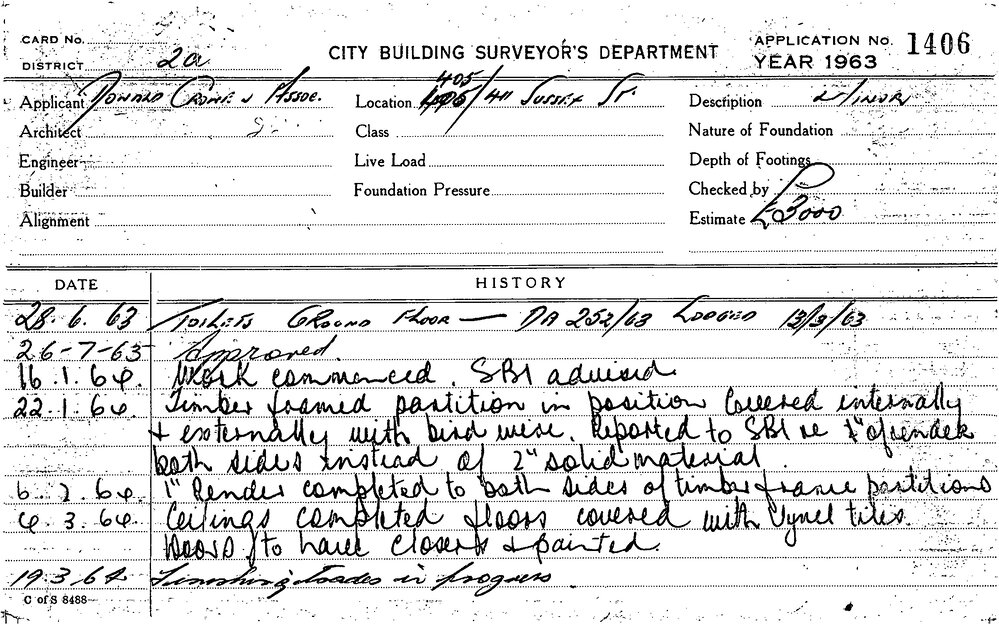 CARD No.
DISTRICT 2a
CITY BUILDING SURVEYOR'S DEPARTMENT
APPLICATION No. 1406
YEAR 1963
Applicant Donald Crone & Assoc.
Location 405/411 Sussex St.
Description Minor
Architect
Class
Nature of Foundation
Engineer
Live Load
Depth of Footings
Builder
Foundation Pressure
Checked by
Alignment
Estimate £3000
DATE HISTORY
28.6.63 Toilets Ground Floor — DA 252/63 Lodged 13/3/63
26-7-63 Approved.
16.1.64. Work commenced. SBI advised
22.1.64 Timber framed partition in position covered internally
& externally with bird wire. Reported to SBI re 1" of render
both sides instead of 2" solid material.
6.2.64. 1" Render completed to both sides of timber frame partitions
4.3.64. Ceilings completed floors covered with Vynel tiles.
Doors to have closers & painted.
19.3.64 Finishing trades in progress.
C of S 8488